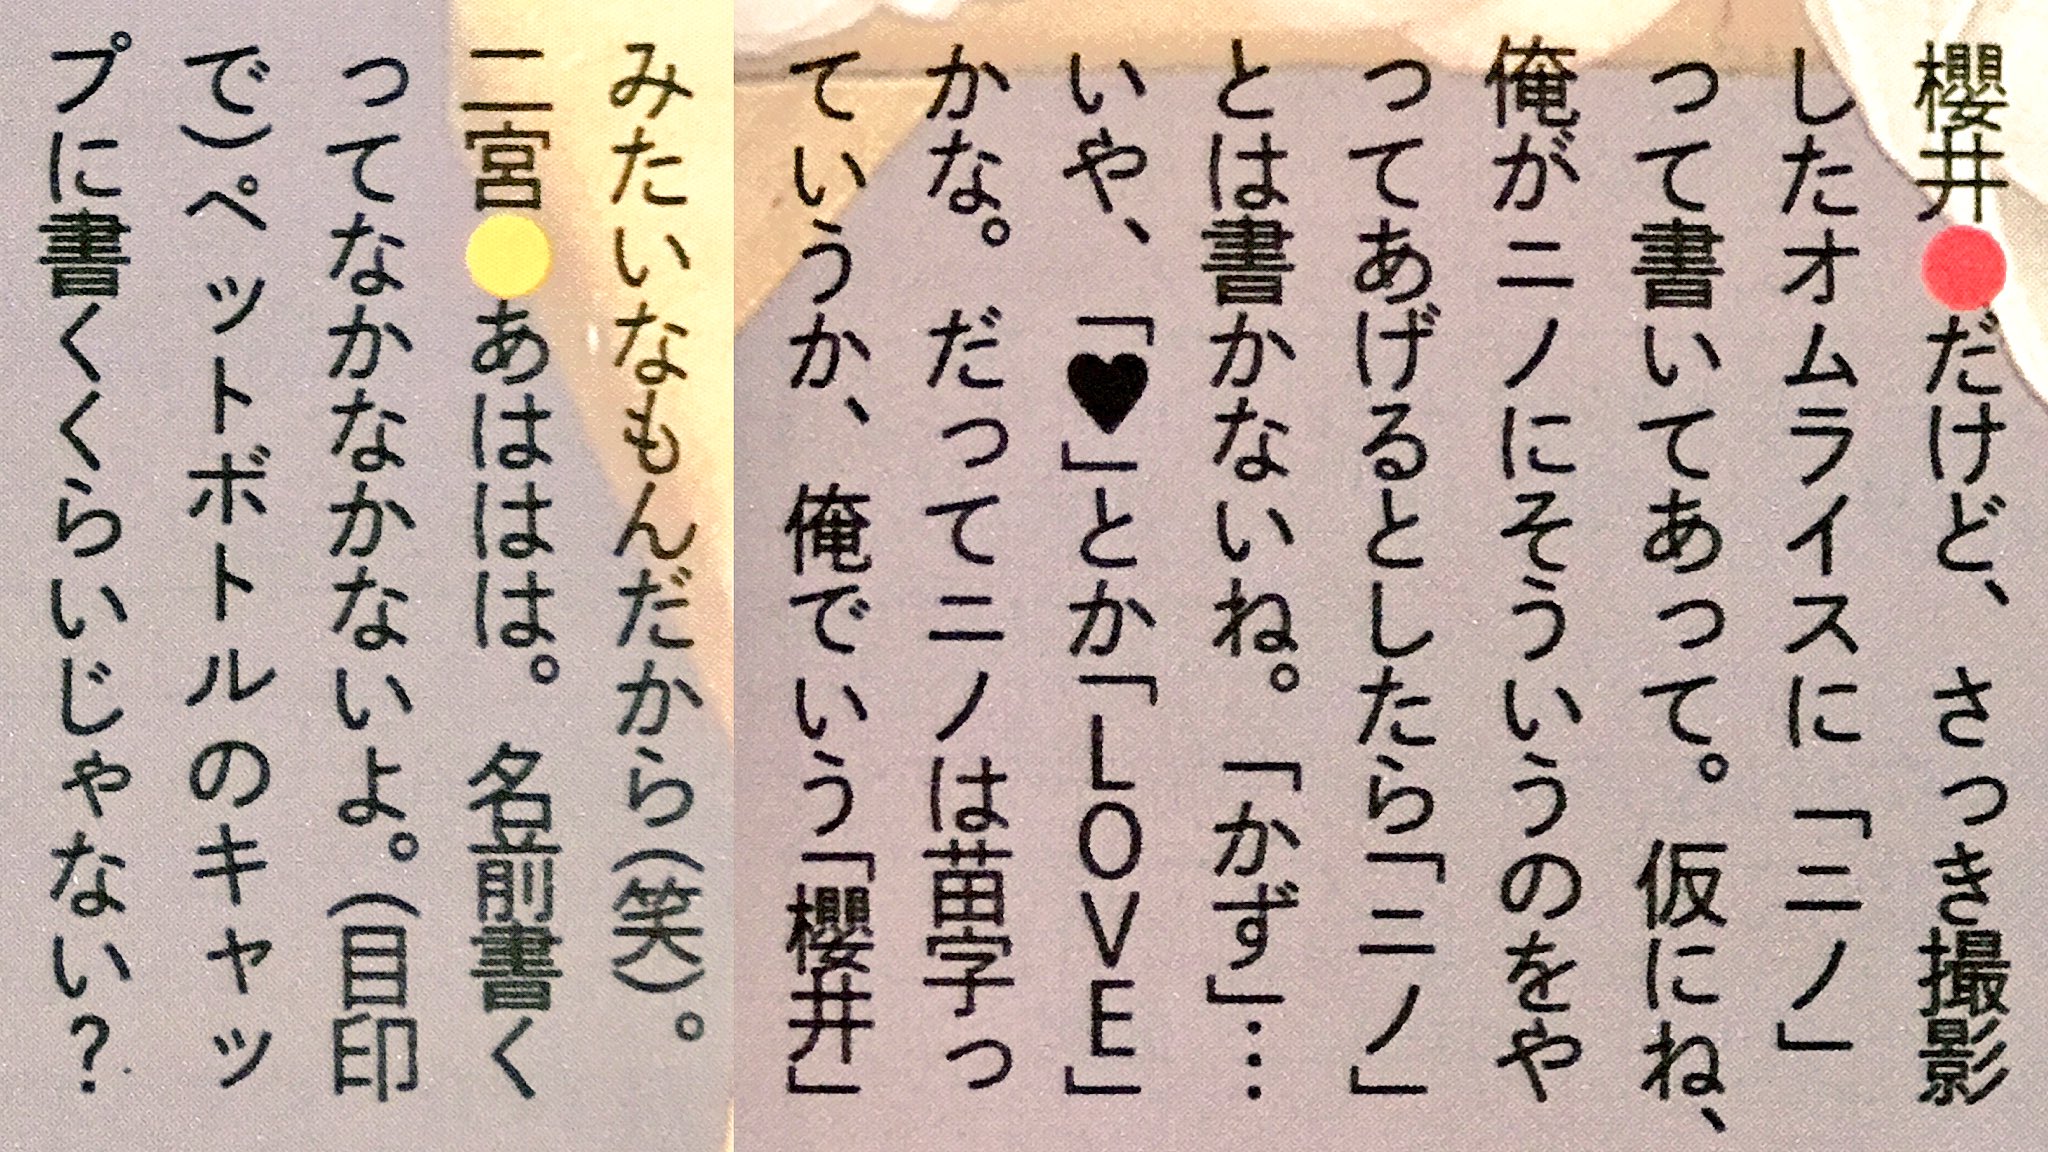 櫻井●だけど、さっき撮影
したオムライスに「ニノ」
って書いてあって。仮にね、
俺がニノにそういうのをや
ってあげるとしたら「ニノ」
とは書かないね。「かず」…
いや、「♥」とか「LOVE」
かな。だってニノは苗字っ
ていうか、俺でいう「櫻井」
みたいなもんだから(笑)。
二宮●あははは。名前書く
ってなかなかないよ。(目印
で)ペットボトルのキャッ
プに書くくらいじゃない?